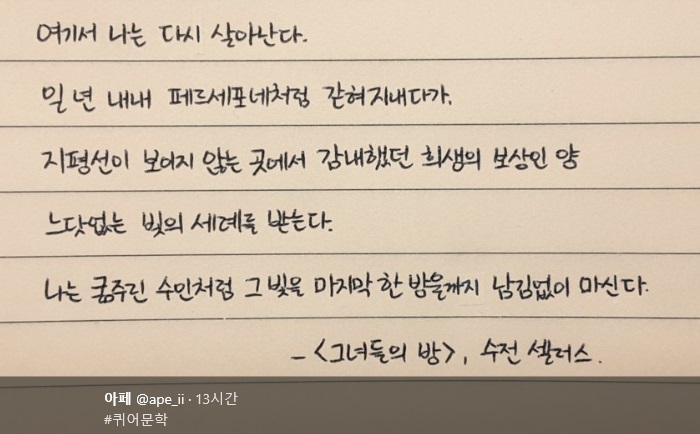 여기서 나는 다시 살아난다.
일 년 내내 페르세포네처럼 갇혀지내다가.
지평선이 보이지 않는 곳에서 감내했던 희생의 보상인 양
느닷없는 빛의 세례를 받는다.
나는 굶주린 수인처럼 그 빛을 마지막 한 방울까지 남김없이 마신다.
- <그녀들의 방>, 수전 셀러스.
아페 @ape_ii · 13시간
#퀴어문학